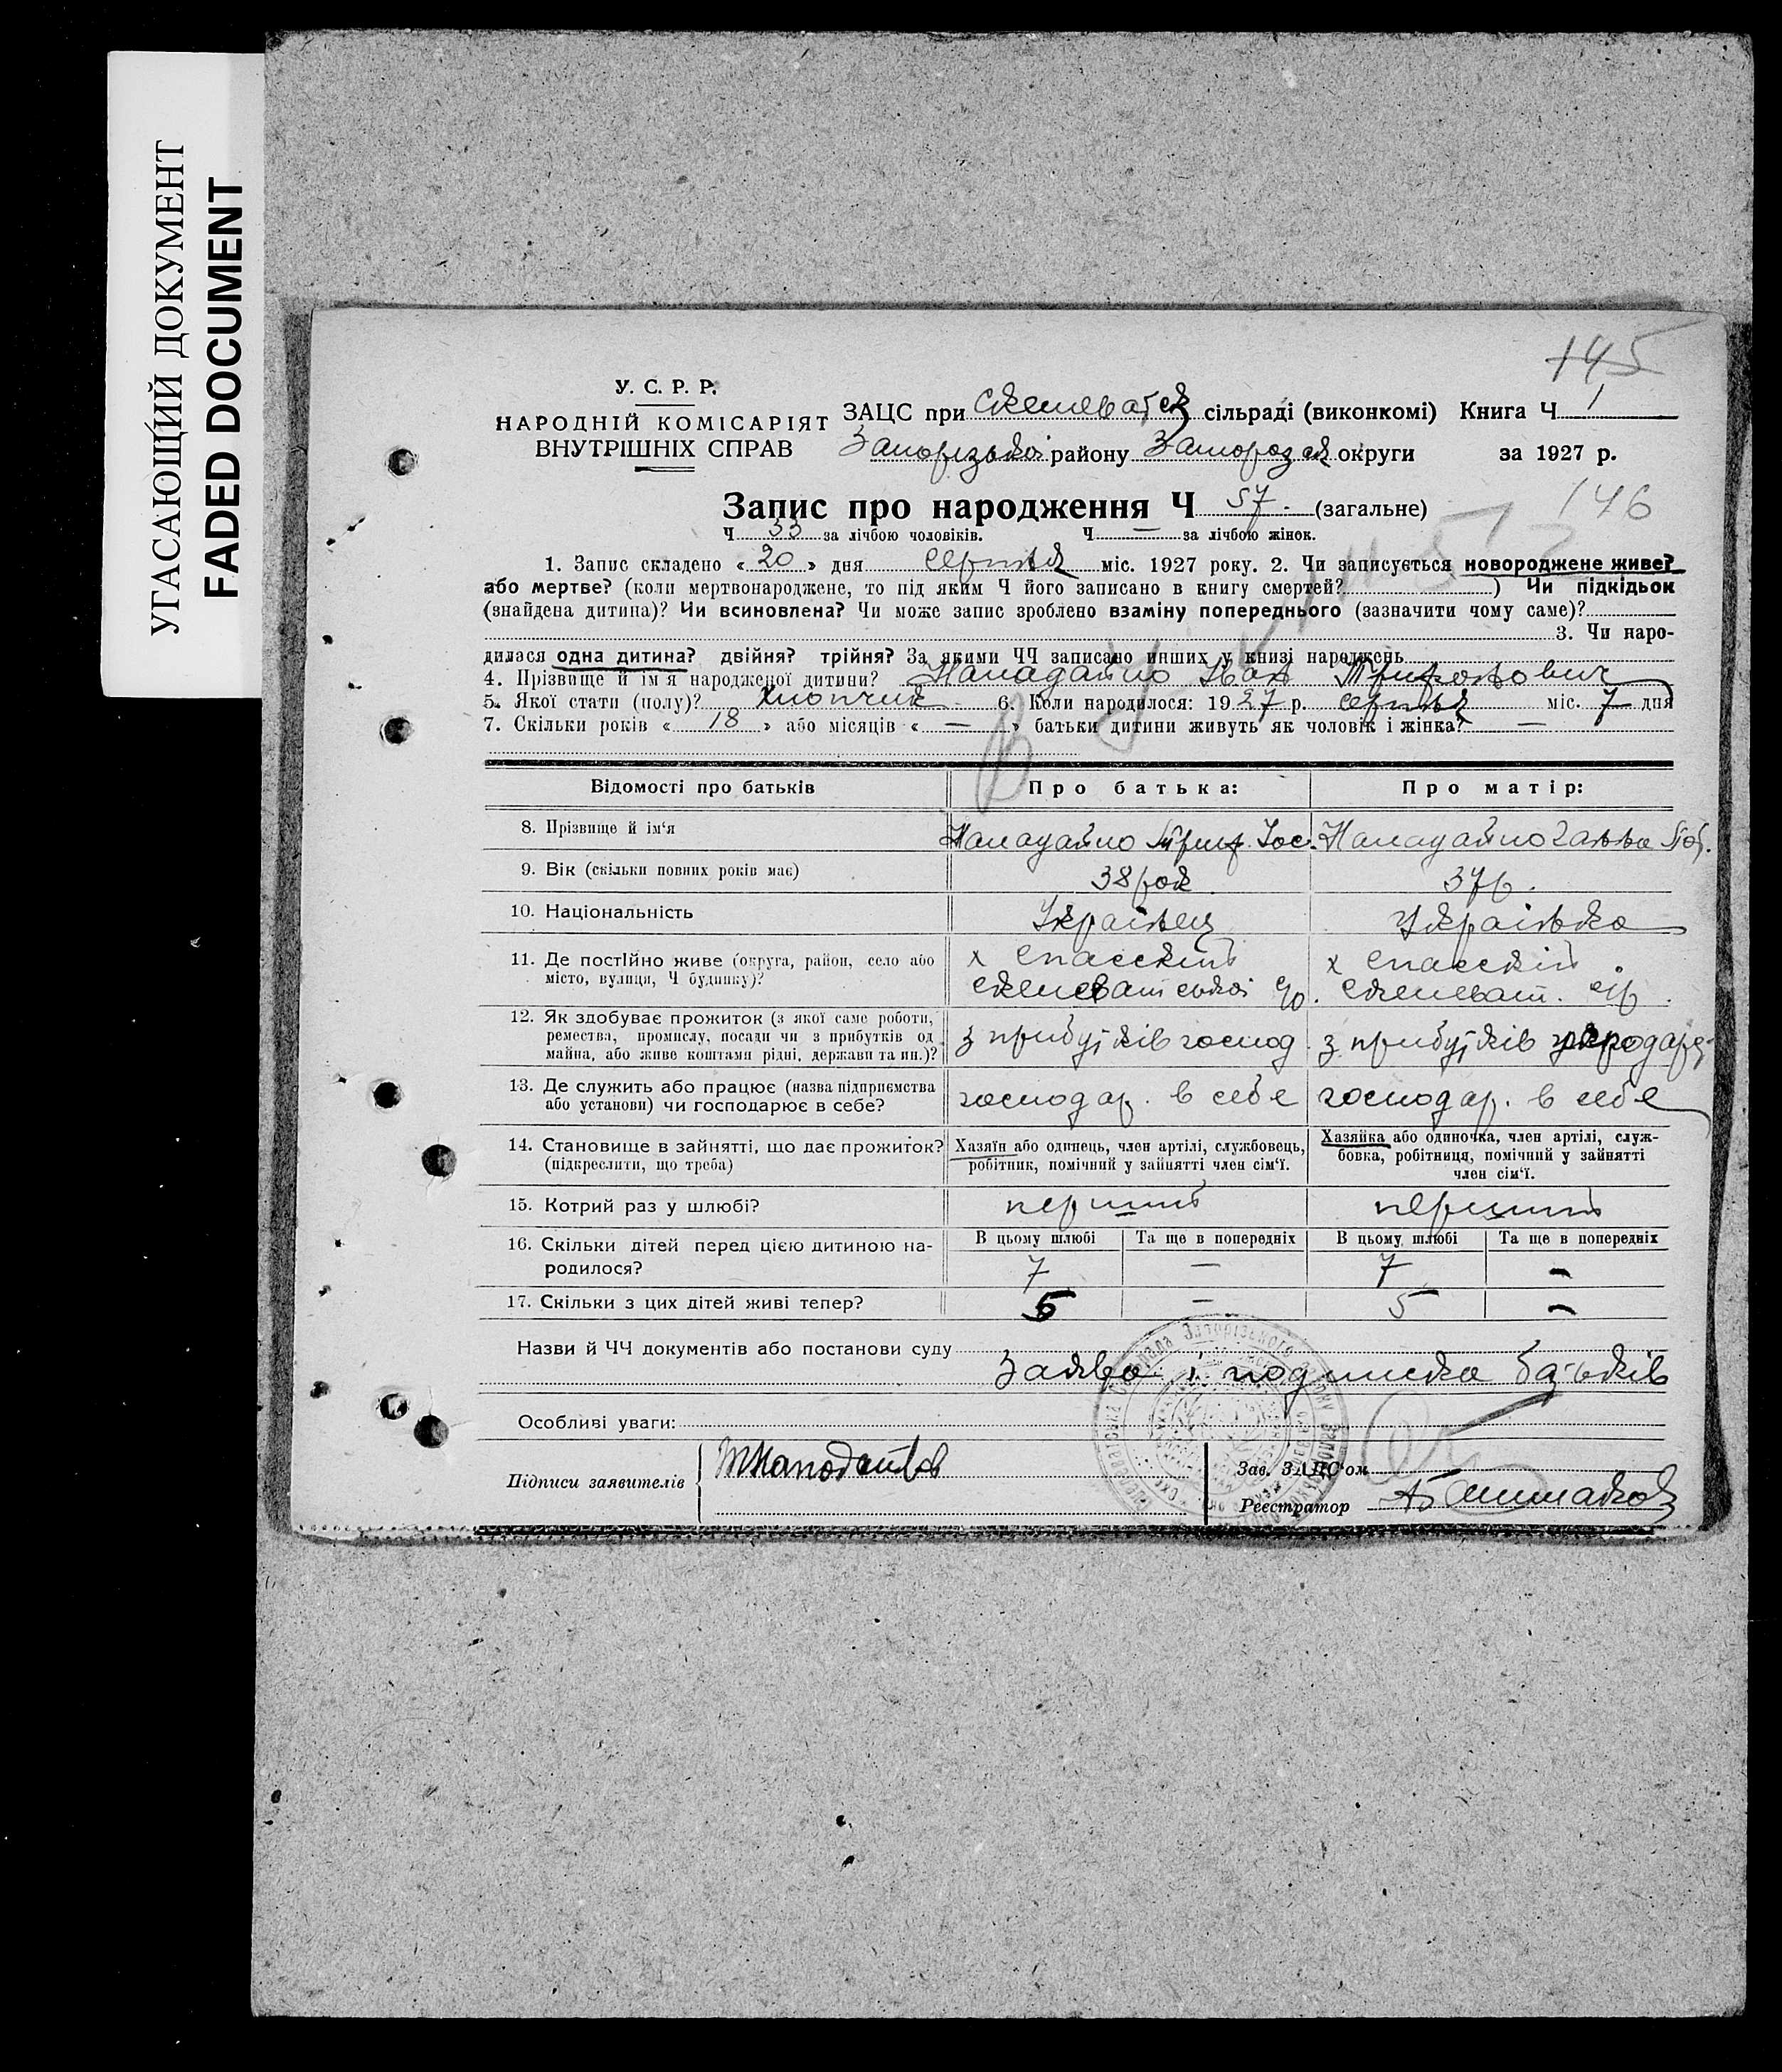 УГАСАЮЩИЙ ДОКУМЕНТ
FADED DOCUMENT
145
У. С. Р. Р.
НАРОДНІЙ КОМІСАРІЯТ
ВНУТРІШНІХ СПРАВ
ЗАЦС при Скелеватск сільраді (виконкомі) Книга Ч 1
Запорізької району Запорозск округи за 1927 р.
Запис про народження Ч 57. (загальне)
146
Ч 33 за лічбою чоловіків. Ч — за лічбою жінок.
1. Запис складено « 20 » дня серпня міс. 1927 року. 2. Чи записується новороджене живе?
або мертве? (коли мертвонароджене, то під яким Ч його записано в книгу смертей? ) Чи підкідьок
(знайдена дитина)? Чи всиновлена? Чи може запис зроблено взаміну попереднього (зазначити чому саме)?
3. Чи наро-
дилася одна дитина? двійня? трійня? За якими ЧЧ записано инших у книзі народжень
4. Прізвище й ім'я народженої дитини? Нападайло Іван Трифонович
5. Якої стати (полу)? хлопчик 6. Коли народилося: 1927 р. серпня міс. 7 дня
7. Скільки років « 18 » або місяців « — » батьки дитини живуть як чоловік і жінка? —
Відомості про батьків Про батька: Про матір:
8. Прізвище й ім'я Нападайло Триф. Іос. Нападайло Ганна
9. Вік (скільки повних років має) 38 рок 37 р.
10. Національність Українец Українка
11. Де постійно живе (округа, район, село або х Спасский х Спасский
місто, вулиця, Ч будинку)? Скелеватської с/р. Скелеват. с/р.
12. Як здобуває прожиток (з якої саме роботи,
ремества, промислу, посади чи з прибутків од
майна, або живе коштами рідні, держави та ин.)? з прибутків господ. з прибутків
13. Де служить або працює (назва підприємства
або установи) чи господарює в себе? господар. в себе господар. в себе
14. Становище в зайнятті, що дає прожиток? Хазяїн або одинець, член артілі, службовець, Хазяйка або одиночка, член артілі, служ-
(підкреслити, що треба) робітник, помічний у зайнятті член сім'ї. бовка, робітниця, помічний у зайнятті
член сім'ї.
15. Котрий раз у шлюбі? перший перший
16. Скільки дітей перед цією дитиною на- В цьому шлюбі Та ще в попередніх В цьому шлюбі Та ще в попередніх
родилося? 7 — 7 —
17. Скільки з цих дітей живі тепер? 5 — 5 —
Назви й ЧЧ документів або постанови суду
Заява і подписка батьків
Особливі уваги:
Підписи заявителів
Зав. ЗАЦС'ом
Реєстратор